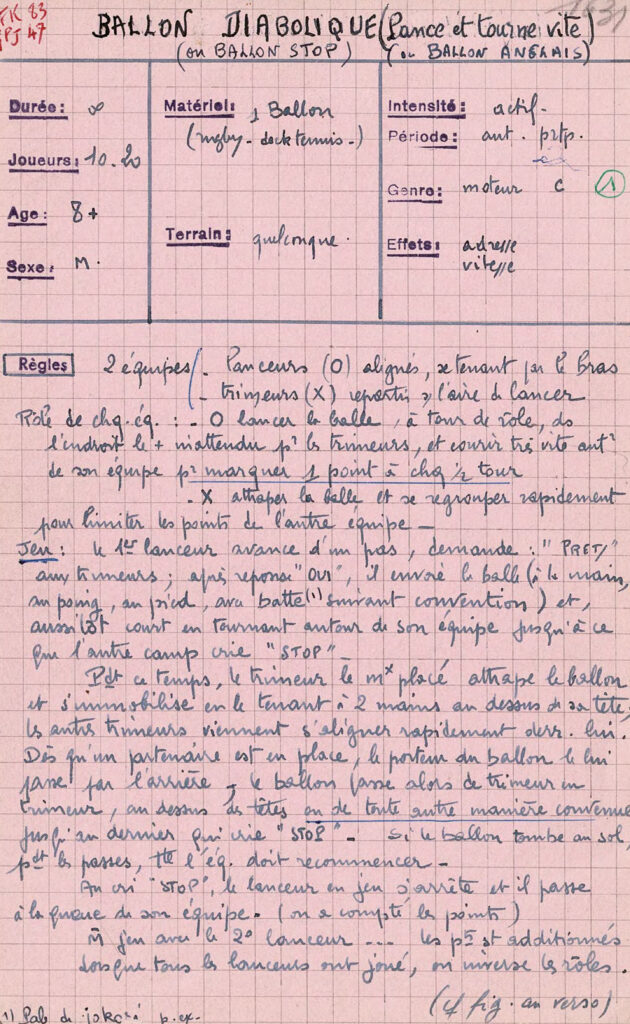 FK 83
PJ 47
1631
BALLON DIABOLIQUE (Lance et tourne vite)
(ou BALLON STOP) (ou BALLON ANGLAIS)
Durée: ∞
Joueurs: 10.20
Age: 8+
Sexe: M.
Matériel: 1 Ballon
(rugby - deck tennis -)
Terrain: quelconque.
Intensité: actif.
Période: ant. prtp.
Genre: moteur C 1
Effets: adresse
vitesse
Règles 2 équipes - Lanceurs (O) alignés, se tenant par le bras
- trimeurs (X) repartis s/ l'aire de lancer
Rôle de chq. éq. : - O lancer la balle, à tour de rôle, ds
l'endroit le + inattendu pr les trimeurs, et courir très vite autr
de son équipe pr marquer 1 point à chq 1/2 tour
- X attraper la balle et se regrouper rapidement
pour limiter les points de l'autre équipe -
Jeu : le 1er lanceur avance d'un pas, demande : "PRET?"
aux trimeurs ; après reponse "OUI", il envoie la balle (à la main,
au poing, au pied, avec batte(1) suivant convention) et,
aussitôt court en tournant autour de son équipe jusqu'à ce
que l'autre camp crie "STOP" -
Pdt ce temps, le trimeur le mx placé attrape le ballon
et s'immobilise en le tenant à 2 mains au dessus de sa tête;
les autres trimeurs viennent s'aligner rapidement derr. lui.
Dès qu'un partenaire est en place, le porteur du ballon le lui
passe par l'arrière - le ballon passe alors de trimeur en
trimeur, au dessus des têtes ou de toute autre manière convenue
jusqu'au dernier qui crie "STOP" - Si le ballon tombe au sol,
pdt les passes, tte l'éq. doit recommencer -
Au cri "STOP", le lanceur en jeu s'arrête et il passe
à la queue de son équipe - (on a compté les points)
M̄ jeu avec le 2° lanceur --- les pts st additionnés
Lorsque tous les lanceurs ont joué, on inverse les rôles.
(cf fig. au verso)
(1) Pale de jokari p. ex-